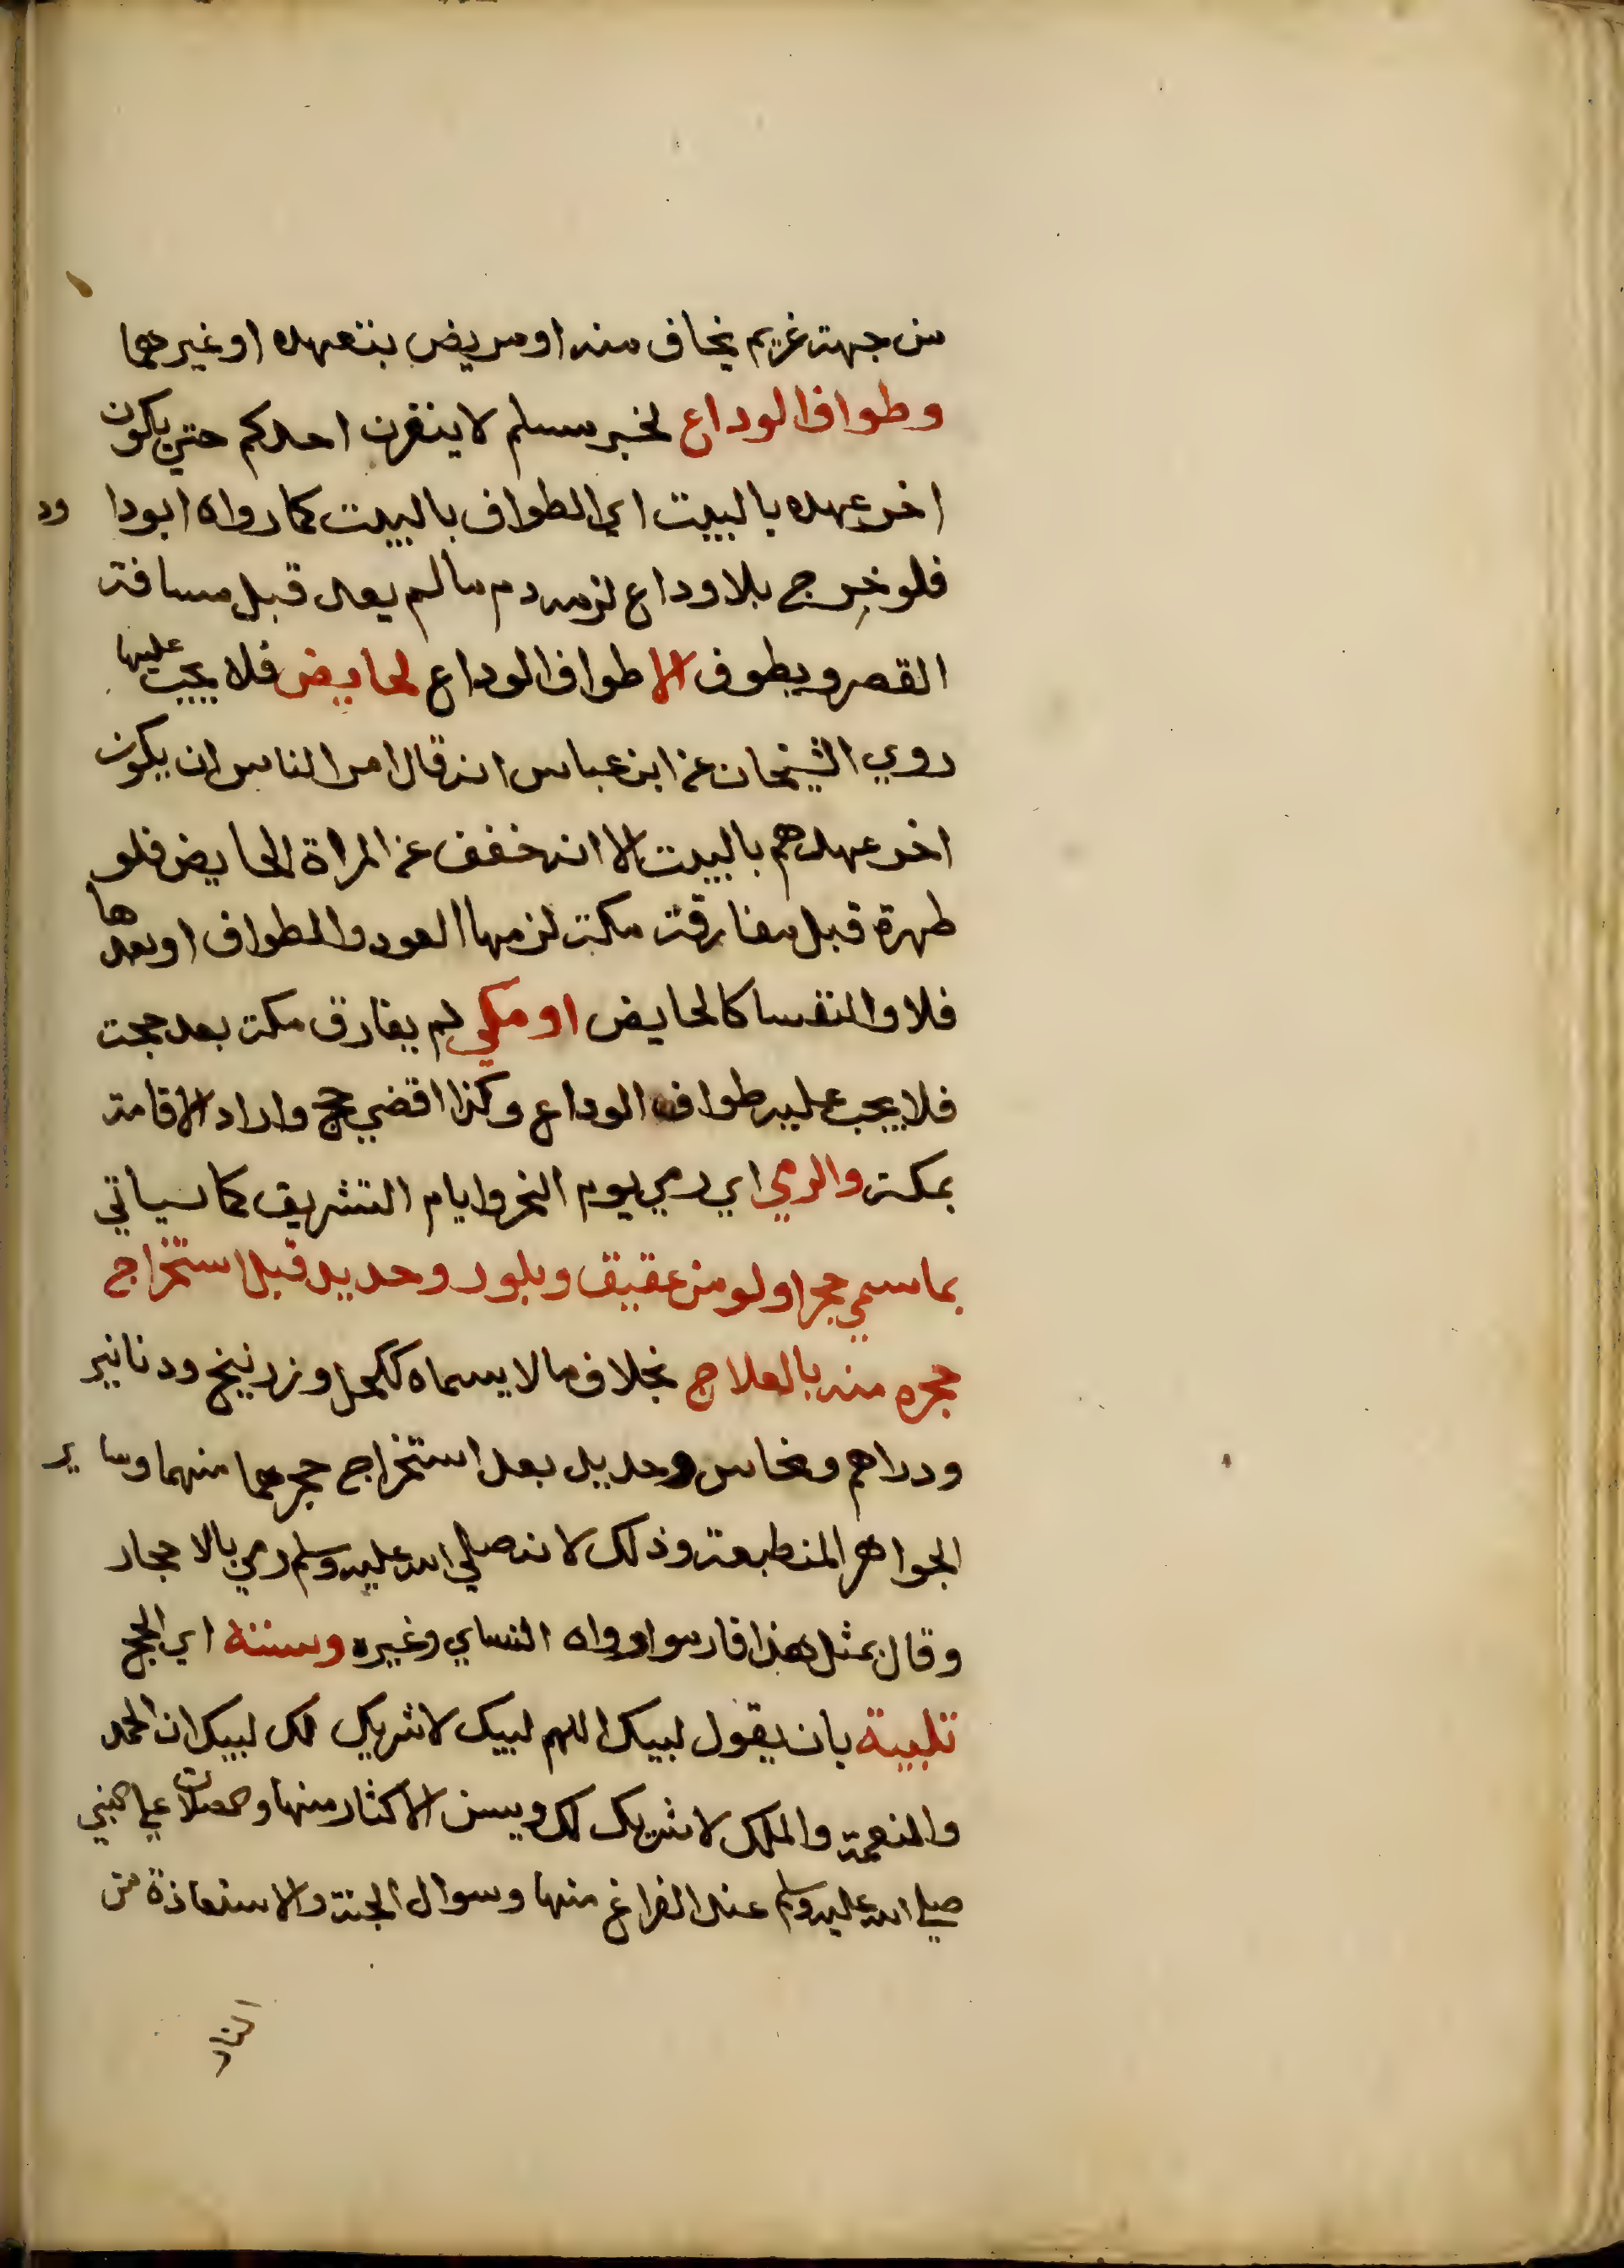 من جهة غريم يخاف منه او مريض يتعهده او غيرهما
وطواف الوداع لخبر مسلم لا ينفرن احدكم حتي يكون
اخر عهده بالبيت اي الطواف بالبيت كما رواه ابودا ود
فلو خرج بلا وداع لزمه دم ما لم يعد قبل مسافة
القصر ويطوف الا طواف الوداع لحايض فلا يجب عليها
روي الشيخان عن ابن عباس انه قال امر الناس ان يكون
اخر عهدهم بالبيت الا انه خفف عن المراة الحايض فلو
طهرة قبل مفارقة مكة لزمها العود والطواف او بعدها
فلا والنفسا كالحايض او مكي لم يفارق مكة بعد حجت
فلا يجب عليه طواف الوداع وكذا اقضي حج واراد الاقامة
بمكة والرمي اي رمي يوم النحر وايام التشريق كما سياتي
بما سمي حجرا ولو من عقيق وبلور وحديد قبل استخراج
حجره منه بالعلاج بخلاف ما لا يسماه ككحل وزرنيخ ودنانير
ودراهم ونحاس وحديد بعد استخراج حجرهما منهما وسا ير
الجواهر المنطبعة وذلك لانه صلي الله عليه وسلم رمي بالاحجار
وقال بمثل هذا فارموا رواه النساي وغيره وسننه اي الحج
تلبية بان يقول لبيك اللهم لبيك لا شريك لك لبيك ان الحمد
والنعمة والملك لا شريك لك ويسن الاكثار منها و علي النبي
صلي الله عليه وسلم عند الفراغ منها وسوال الجنة والاستعاذة من
النار